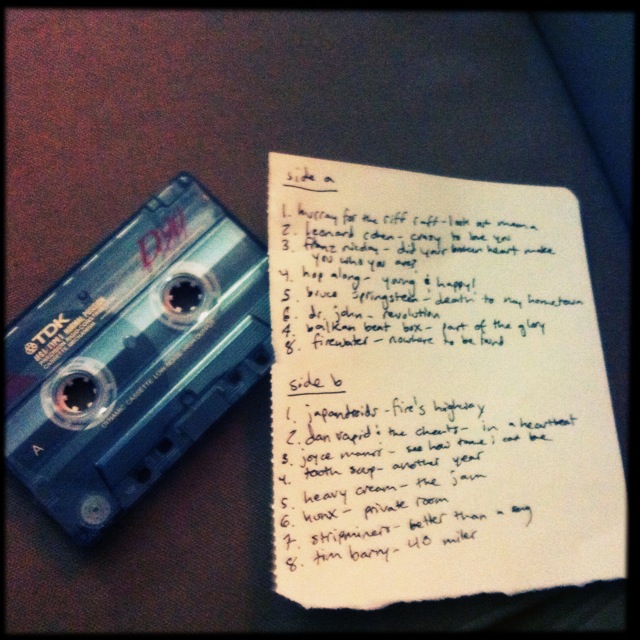 D90
TDK
A
side a
1. hurray for the riff raff - look at mama
2. leonard cohen - crazy to love you
3. franz nicolay - did your broken heart make
you who you are?
4. hop along - young & happy!
5. bruce springsteen - death to my hometown
6. dr. john - revolution
7. balkan beat box - part of the glory
8. firewater - nowhere to be
side b
1. japandroids - fire's highway
2. dan vapid & the cheats - in a heartbeat
3. joyce manor - see how tame i can be
4. tooth soup - another year
5. heavy cream - the jam
6. hunx - private room
7. stripminers - better than a
8. tim barry - 40 miler